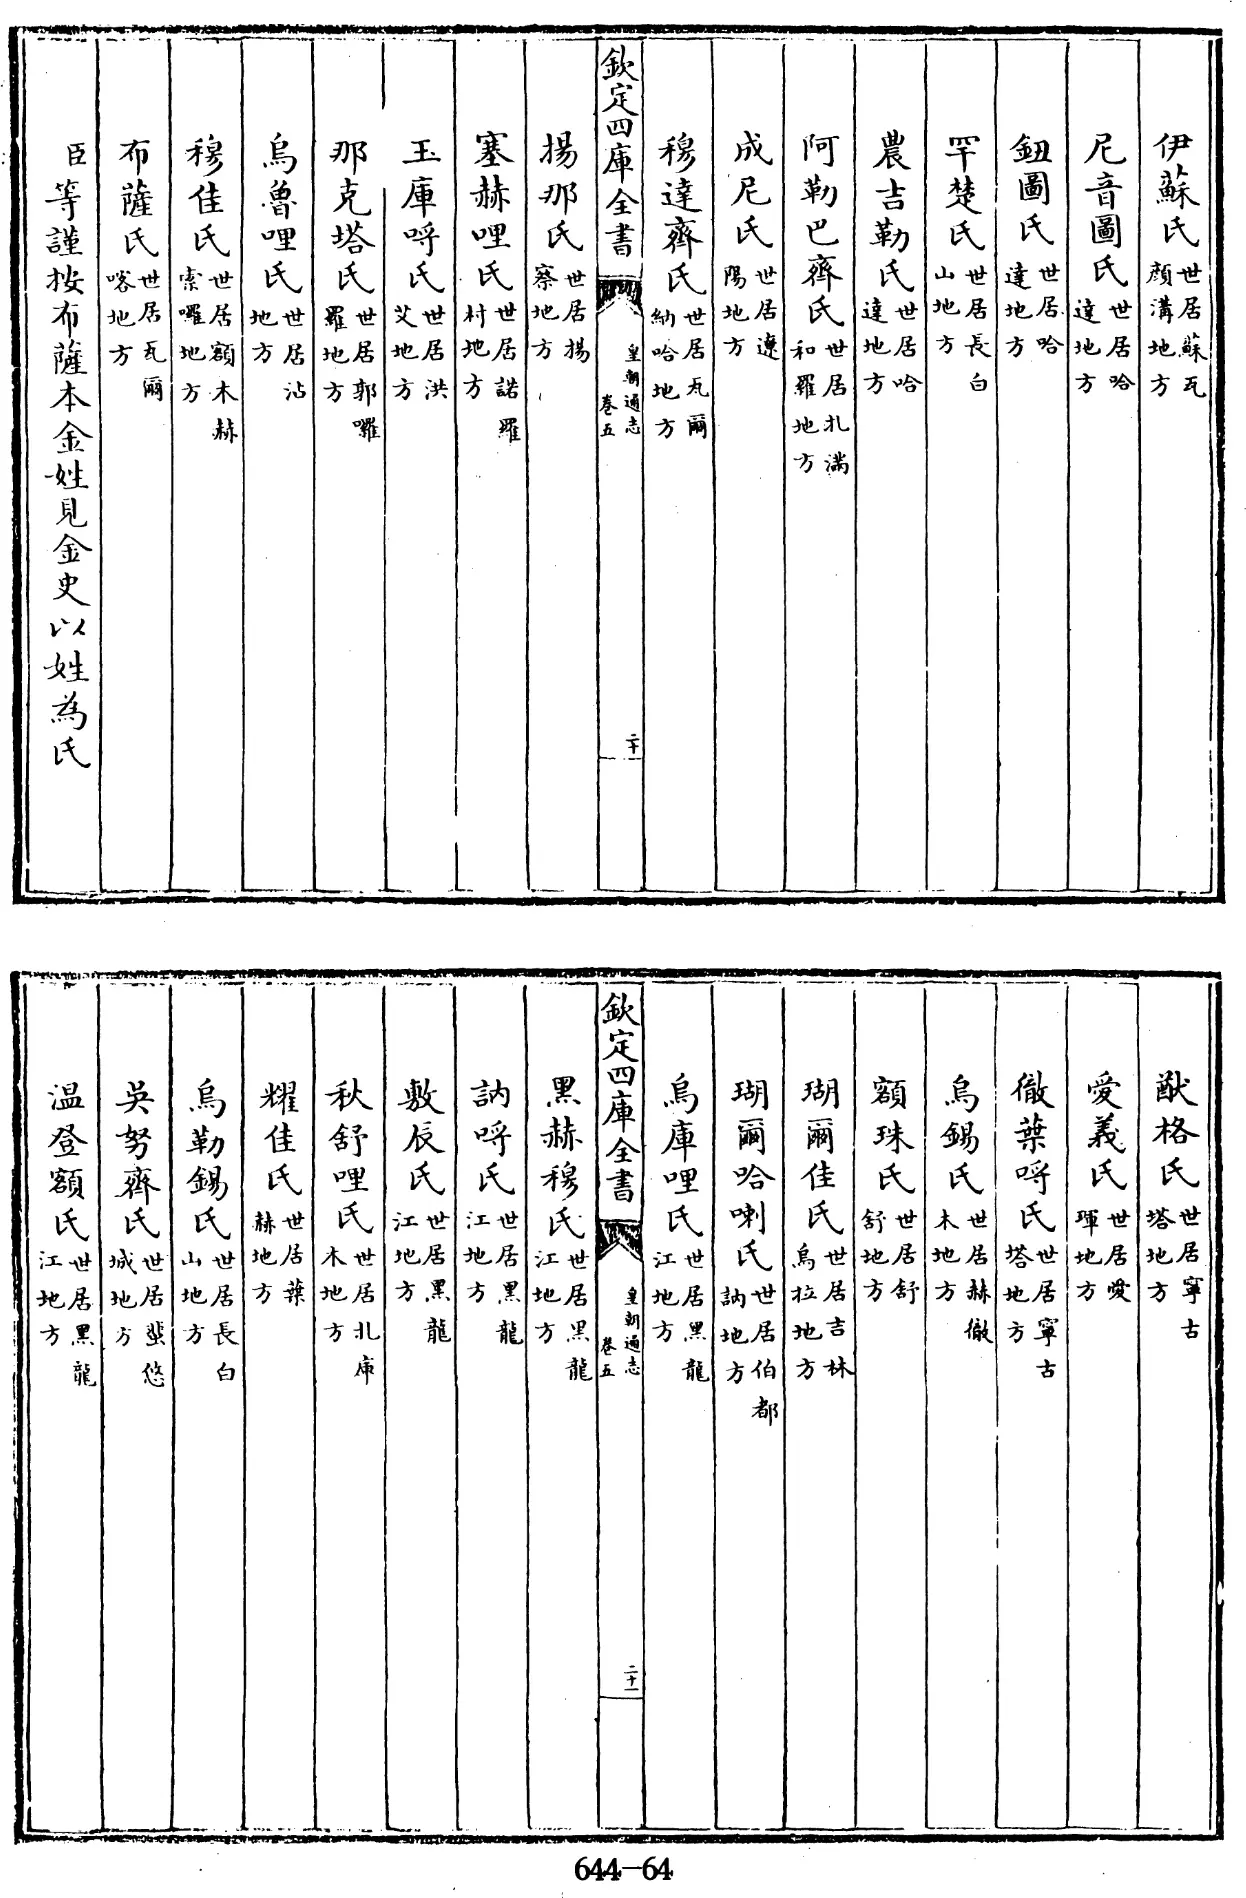 伊蘇氏世居蘇瓦顔溝地方
尼音圖氏世居哈達地方
鈕圖氏世居哈達地方
罕楚氏世居長白山地方
農吉勒氏世居哈達地方
阿勒巴齊氏世居札滿和羅地方
成尼氏世居遼陽地方
穆達齊氏世居瓦爾納哈地方
欽定四庫全書
皇朝通志
卷五
二十
揚那氏世居揚察地方
塞赫哩氏世居諾羅村地方
玉庫哷氏世居洪艾地方
那克塔氏世居郭囉羅地方
烏魯哩氏世居沾地方
穆佳氏世居額木赫索囉地方
布薩氏世居瓦爾喀地方
臣等謹按布薩本金姓見金史以姓為氏
猷格氏世居寧古塔地方
愛義氏世居愛琿地方
徹葉哷氏世居寧古塔地方
烏錫氏世居赫徹木地方
額珠氏世居舒舒地方
瑚爾佳氏世居吉林烏拉地方
瑚爾哈喇氏世居伯都訥地方
烏庫哩氏世居黑龍江地方
欽定四庫全書
皇朝通志
卷五
二十一
黑赫穆氏世居黑龍江地方
訥哷氏世居黑龍江地方
敷辰氏世居黑龍江地方
秋舒哩氏世居札庫木地方
耀佳氏世居葉赫地方
烏勒錫氏世居長白山地方
吳努齊氏世居蜚悠城地方
温登額氏世居黑龍江地方
644-64